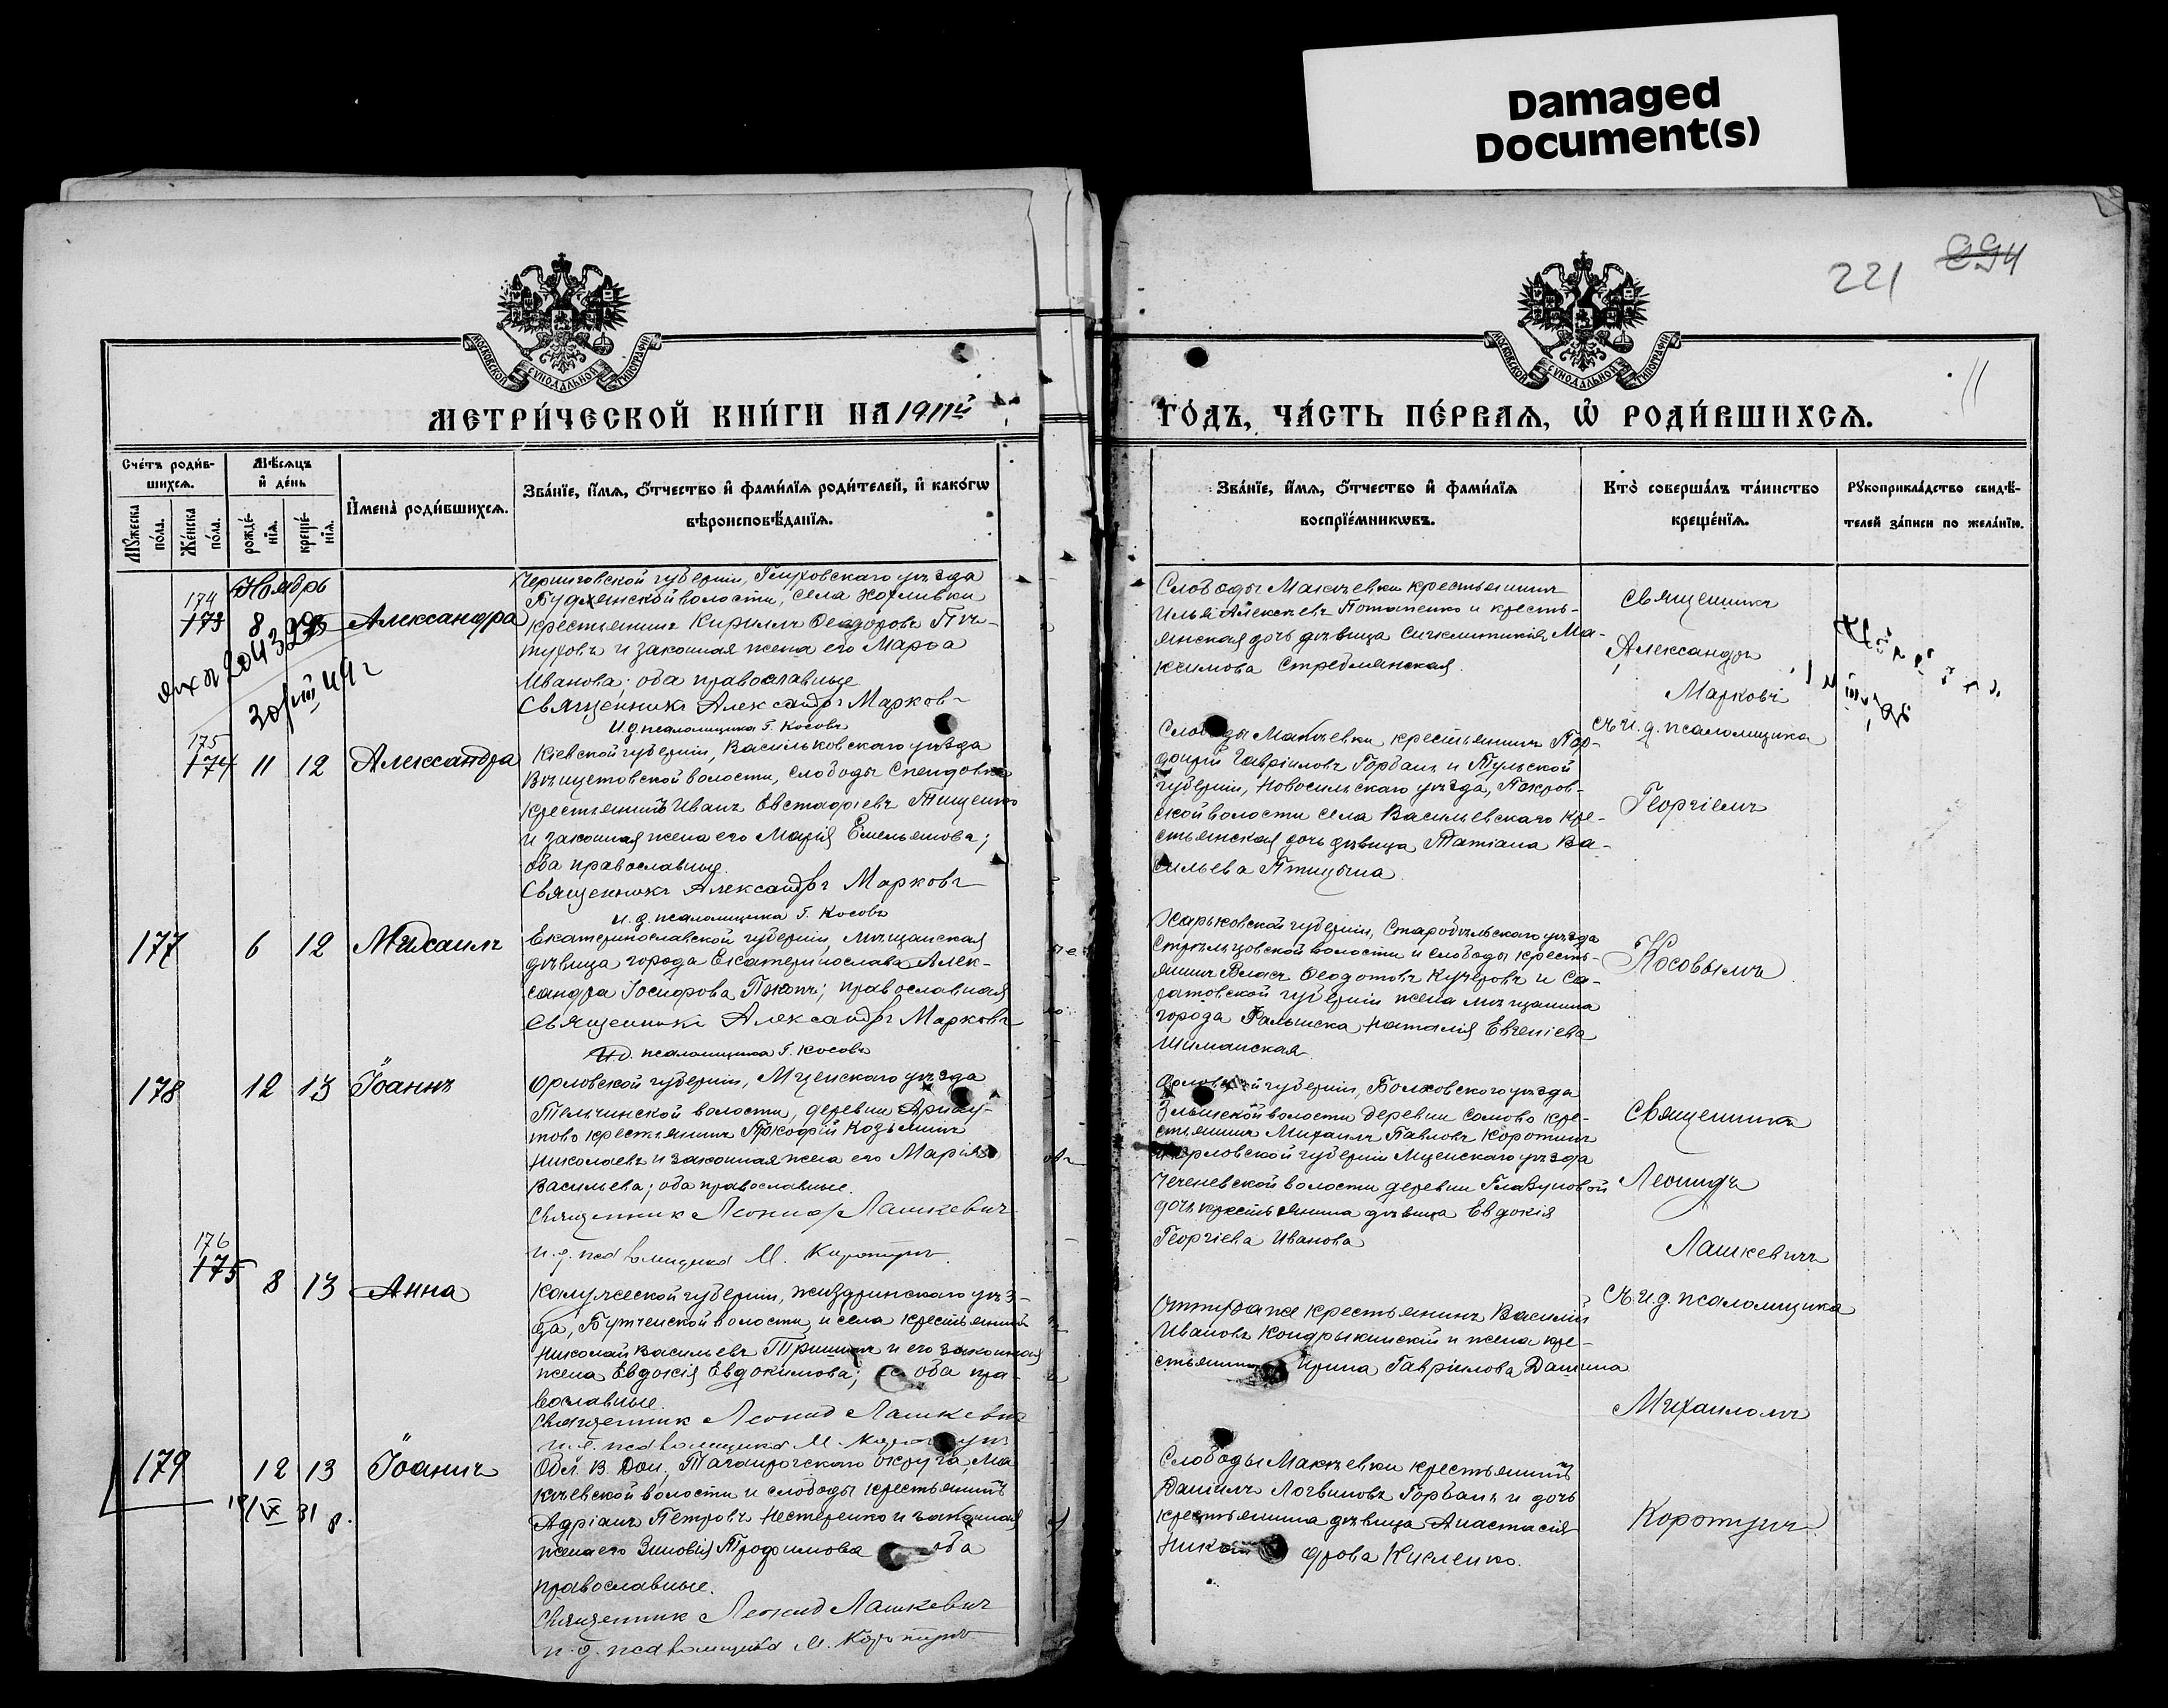 Damaged
Document(s)
221
894
11
МОСКОВСКОЙ СУНОДАЛЬНОЙ ТИПОГРАФІИ
МОСКОВСКОЙ СУНОДАЛЬНОЙ ТИПОГРАФІИ
МЕТРИ́ЧЕСКОЙ КНИ́ГИ НА 1911й
ГО́ДЪ, ЧА́СТЬ ПЕ́РВАѦ, Ѡ҆ РОДИ́ВШИХСѦ.
Сче́тъ роди́в-
шихсѧ.
Мѣ́сѧцъ
и҆ де́нь
Мꙋ́жеска
по́ла.
Же́нска
по́ла.
рожде́-
нїѧ.
креще́-
нїѧ.
И҆мена̀ роди́вшихсѧ.
Зва́нїе, и҆́мѧ, ѻ҆́тчество и҆ фами́лїѧ роди́телей, и҆ како́гѡ
вѣроисповѣ́данїѧ.
Зва́нїе, и҆́мѧ, ѻ҆́тчество и҆ фами́лїѧ
воспрїе́мникѡвъ.
Кто̀ соверша́лъ та́инство
креще́нїѧ.
Рꙋкоприкла́дство свидѣ́-
телей за́писи по жела́нїю.
Ноябрь
174
173 8 Александра
Черниговской губерніи, Глуховскаго уѣзда
волости, села
крестьянинъ Кириллъ Ѳеодоровъ Пѣ-
туховъ и законная жена его Марѳа
Иванова; оба православные
Священникъ Александръ Марковъ
И.д. псаломщика Г. Косовъ
20432
30/III 49 г
Слободы Макѣевки крестьянинъ
Илья Алексѣевъ Потапенко и кресть-
янская дочь дѣвица Ма-
кимова Стремянская.
Священникъ
Александръ
Марковъ
съ и.д. псаломщика
Георгіемъ
Косовымъ
175
174 11 12 Александра
Кіевской губерніи, Васильковскаго уѣзда
волости, слободы
крестьянинъ Иванъ Евстафіевъ Тищенко
и законная жена его Марія Емельянова;
оба православные.
Священникъ Александръ Марковъ
и.д. псаломщика Г. Косовъ
Слободы Макѣевки крестьянинъ Пор-
фирій Гавріиловъ Горбань и Тульской
губерніи, Новосильскаго уѣзда, Покров-
ской волости села Васильевскаго кре-
стьянская дочь дѣвица Татіана Ва-
сильева Птицына.
177 6 12 Михаилъ
Екатеринославской губерніи, мѣщанская
дѣвица города Екатеринослава Алек-
сандра Іосифова; православная
Священникъ Александръ Марковъ
И.д. псаломщика Г. Косовъ
Харьковской губерніи, Старобѣльскаго уѣзда
Стрѣльцовской волости и слободы кресть-
янинъ Власъ Ѳеодотовъ Кучеровъ и Са-
ратовской губерніи жена мѣщанина
города Наталія Евгеніева
Шиманская.
178 12 13 Іоаннъ
Орловской губерніи, Мценскаго уѣзда
Тельчинской волости, деревни
крестьянинъ Прокофій Козьминъ
Николаевъ и законная жена его Марія
Васильева; оба православные.
Священник Леонид Лашкевич
и.д. псаломщика М. Коротунъ
Орловской губерніи, Болховскаго уѣзда
волости деревни Сомово кре-
стьянинъ Михаилъ Павловъ Коротинъ
и Орловской губерніи Мценскаго уѣзда
волости деревни
дочь крестьянина дѣвица Евдокія
Георгіева Иванова
Священникъ
Леонидъ
Лашкевичъ
съ и.д. псаломщика
Михаиломъ
Коротунъ
176
175 8 13 Анна
Калужской губерніи, Жиздринскаго уѣз-
да, Бутчинской волости и села крестьянинъ
Николай Васильевъ Тришинъ и его законная
жена Евдокія Евдокимова; оба пра-
вославные.
Священник Леонид Лашкевич
и.д. псаломщика М. Коротунъ
Оттуда же крестьянинъ Василій
Ивановъ Кондрыкинскій и жена кре-
стьянина Ирина Гавріилова Дашина
179 12 13 Іоаннъ
18/IX 31 г.
Обл. В. Дон., Таганрогскаго округа, Ма-
кѣевской волости и слободы крестьянинъ
Адріанъ Петровъ Нестеренко и законная
жена его Зиновія Трофимова оба
православные.
Священник Леонид Лашкевич
и.д. псаломщика М. Коротунъ
Слободы Макѣевки крестьянинъ
Даніилъ Логвиновъ Горбань и дочь
крестьянина дѣвица Анастасія
Кисленко.